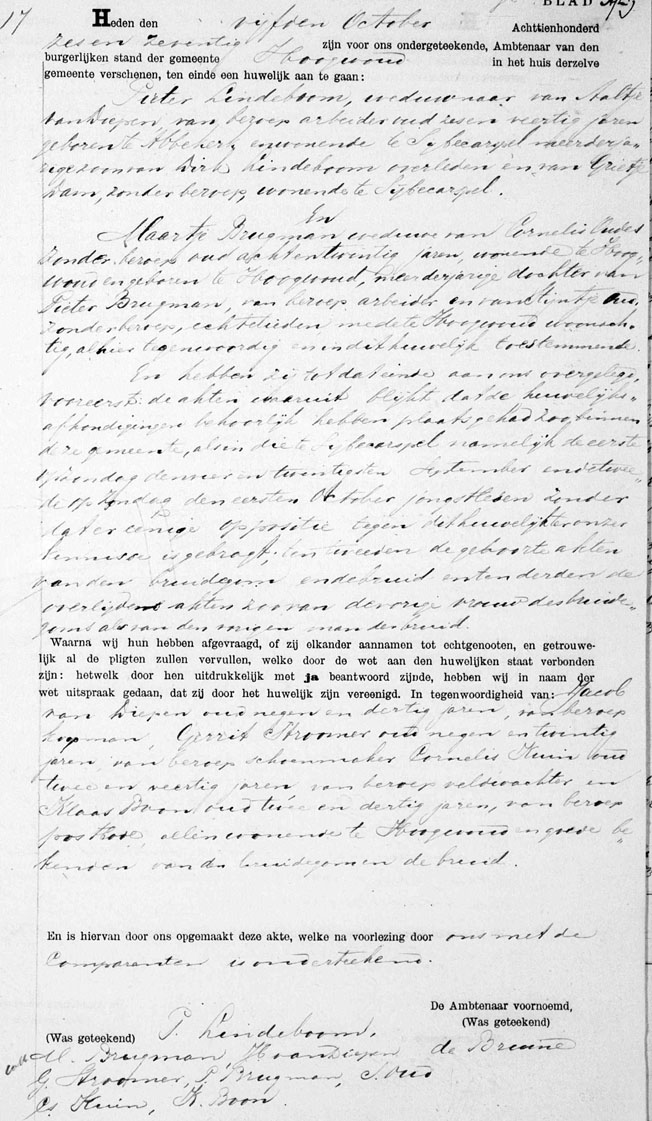 17
BLAD
Heden den vijfden October Achttienhonderd
zes en zeventig zijn voor ons ondergeteekende, Ambtenaar van den
burgerlijken stand der gemeente Hoogwoud in het huis derzelve
gemeente verschenen, ten einde een huwelijk aan te gaan:
Pieter Lindeboom, weduwnaar van Aaltje
van Diepen, van beroep arbeider oud zes en veertig jaren
geboren te Abbekerk, en wonende te Sijbecarspel meerderja-
rige zoon van Dirk Lindeboom overleden en van Grietje
Dam, zonder beroep, wonende te Sijbecarspel.
En
Maartje Brugman weduwe van Cornelis Oudes
zonder beroep oud acht en twintig jaren, wonende te Hoog-
woud en geboren te Hoogwoud, meerderjarige dochter van
Pieter Brugman, van beroep arbeider en van Trijntje Oud,
zonder beroep, echtelieden mede te Hoogwoud woonach-
tig, alhier tegenwoordig en in dit huwelijk toestemmende.
En hebben zij tot dat einde aan ons overgelegd,
vooreerst: de akten waaruit blijkt dat de huwelijks-
afkondigingen behoorlijk hebben plaats gehad zoo binnen
deze gemeente, als in die te Sijbecarspel namelijk de eerste
op Zondag den vier en twintigsten September en de twee-
de op Zondag den eersten October jongstleden zonder
dat er eenige oppositie tegen dit huwelijk ter onzer
kennisse is gebragt; ten tweeden de geboorte akten
van den bruidegom en de bruid en ten derden de
overlijdens akten zoo van de vorige vrouw des bruide-
goms als van den vorigen man der bruid.
Waarna wij hun hebben afgevraagd, of zij elkander aannamen tot echtgenooten, en getrouwe-
lijk al de pligten zullen vervullen, welke door de wet aan den huwelijken staat verbonden
zijn: hetwelk door hen uitdrukkelijk met ja beantwoord zijnde, hebben wij in naam der
wet uitspraak gedaan, dat zij door het huwelijk zijn vereenigd. In tegenwoordigheid van: Jacob
van Diepen oud negen en dertig jaren, van beroep
koopman, Gerrit Stroomer oud negen en twintig
jaren, van beroep schoenmaker Cornelis Kuin oud
twee en veertig jaren, van beroep veldwachter en
Klaas Boon oud twee en dertig jaren, van beroep
postbode, allen wonende te Hoogwoud en goede be-
kenden van den bruidegom en de bruid.
En is hiervan door ons opgemaakt deze akte, welke na voorlezing door ons met de
Comparanten is onderteekend.
De Ambtenaar voornoemd,
(Was geteekend)
de Breune
(Was geteekend) P. Lindeboom,
M. Brugman, J. van Diepen
G. Stroomer, P. Brugman, T. Oud
Cs. Kuin, K. Boon.